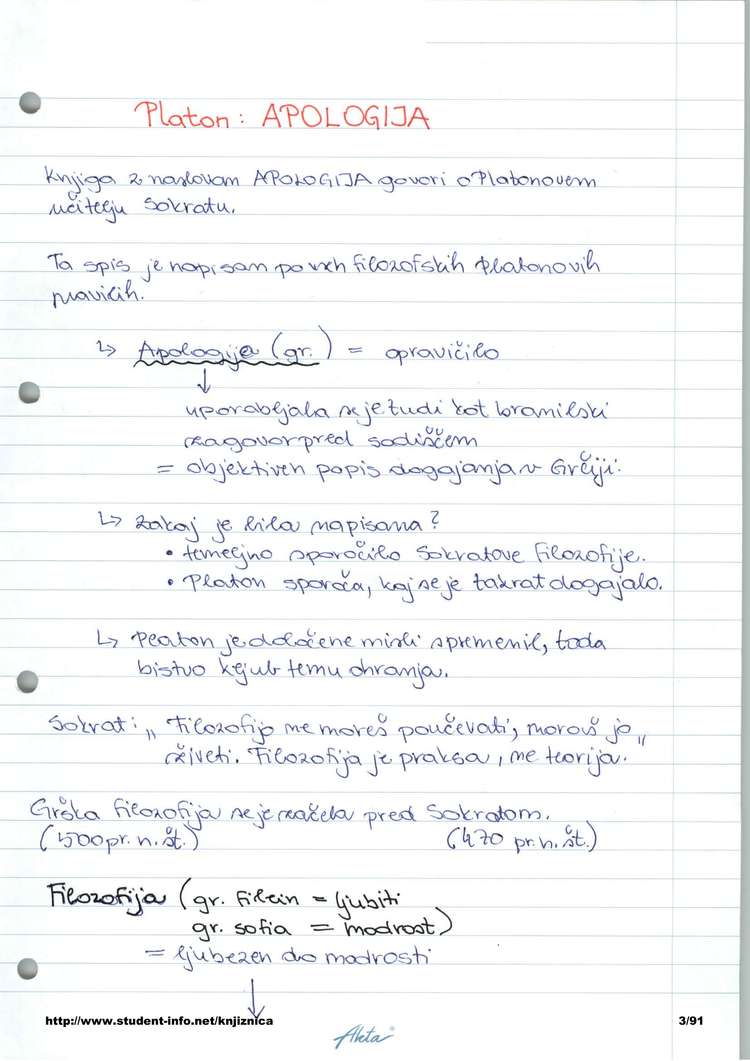 Platon: APOLOGIJA
Knjiga z naslovom APOLOGIJA govori o Platonovem
učitelju Sokratu.
Ta spis je napisan po vseh filozofskih Platonovih
pravilih.
↳ Apologija (gr.) = opravičilo
↓
uporabljala se je tudi kot bramilski
zagovor pred sodiščem
= objektiven popis dogajanja v Grčiji.
↳ Zakaj je bila napisana?
• temeljno sporočilo Sokratove filozofije.
• Platon sporoča, kaj se je takrat dogajalo.
↳ Platon je določene misli spremenil, toda
bistvo kljub temu ohranja.
Sokrat: „Filozofijo ne moreš poučevati, moraš jo
živeti. Filozofija je praksa, ne teorija."
Grška filozofija se je začela pred Sokratom.
(500 pr. n. št.) (470 pr. n. št.)
Filozofija (gr. filein = ljubiti
gr. sofia = modrost)
= ljubezen do modrosti
↓
http://www.student-info.net/knjiznica 3/91
Akta